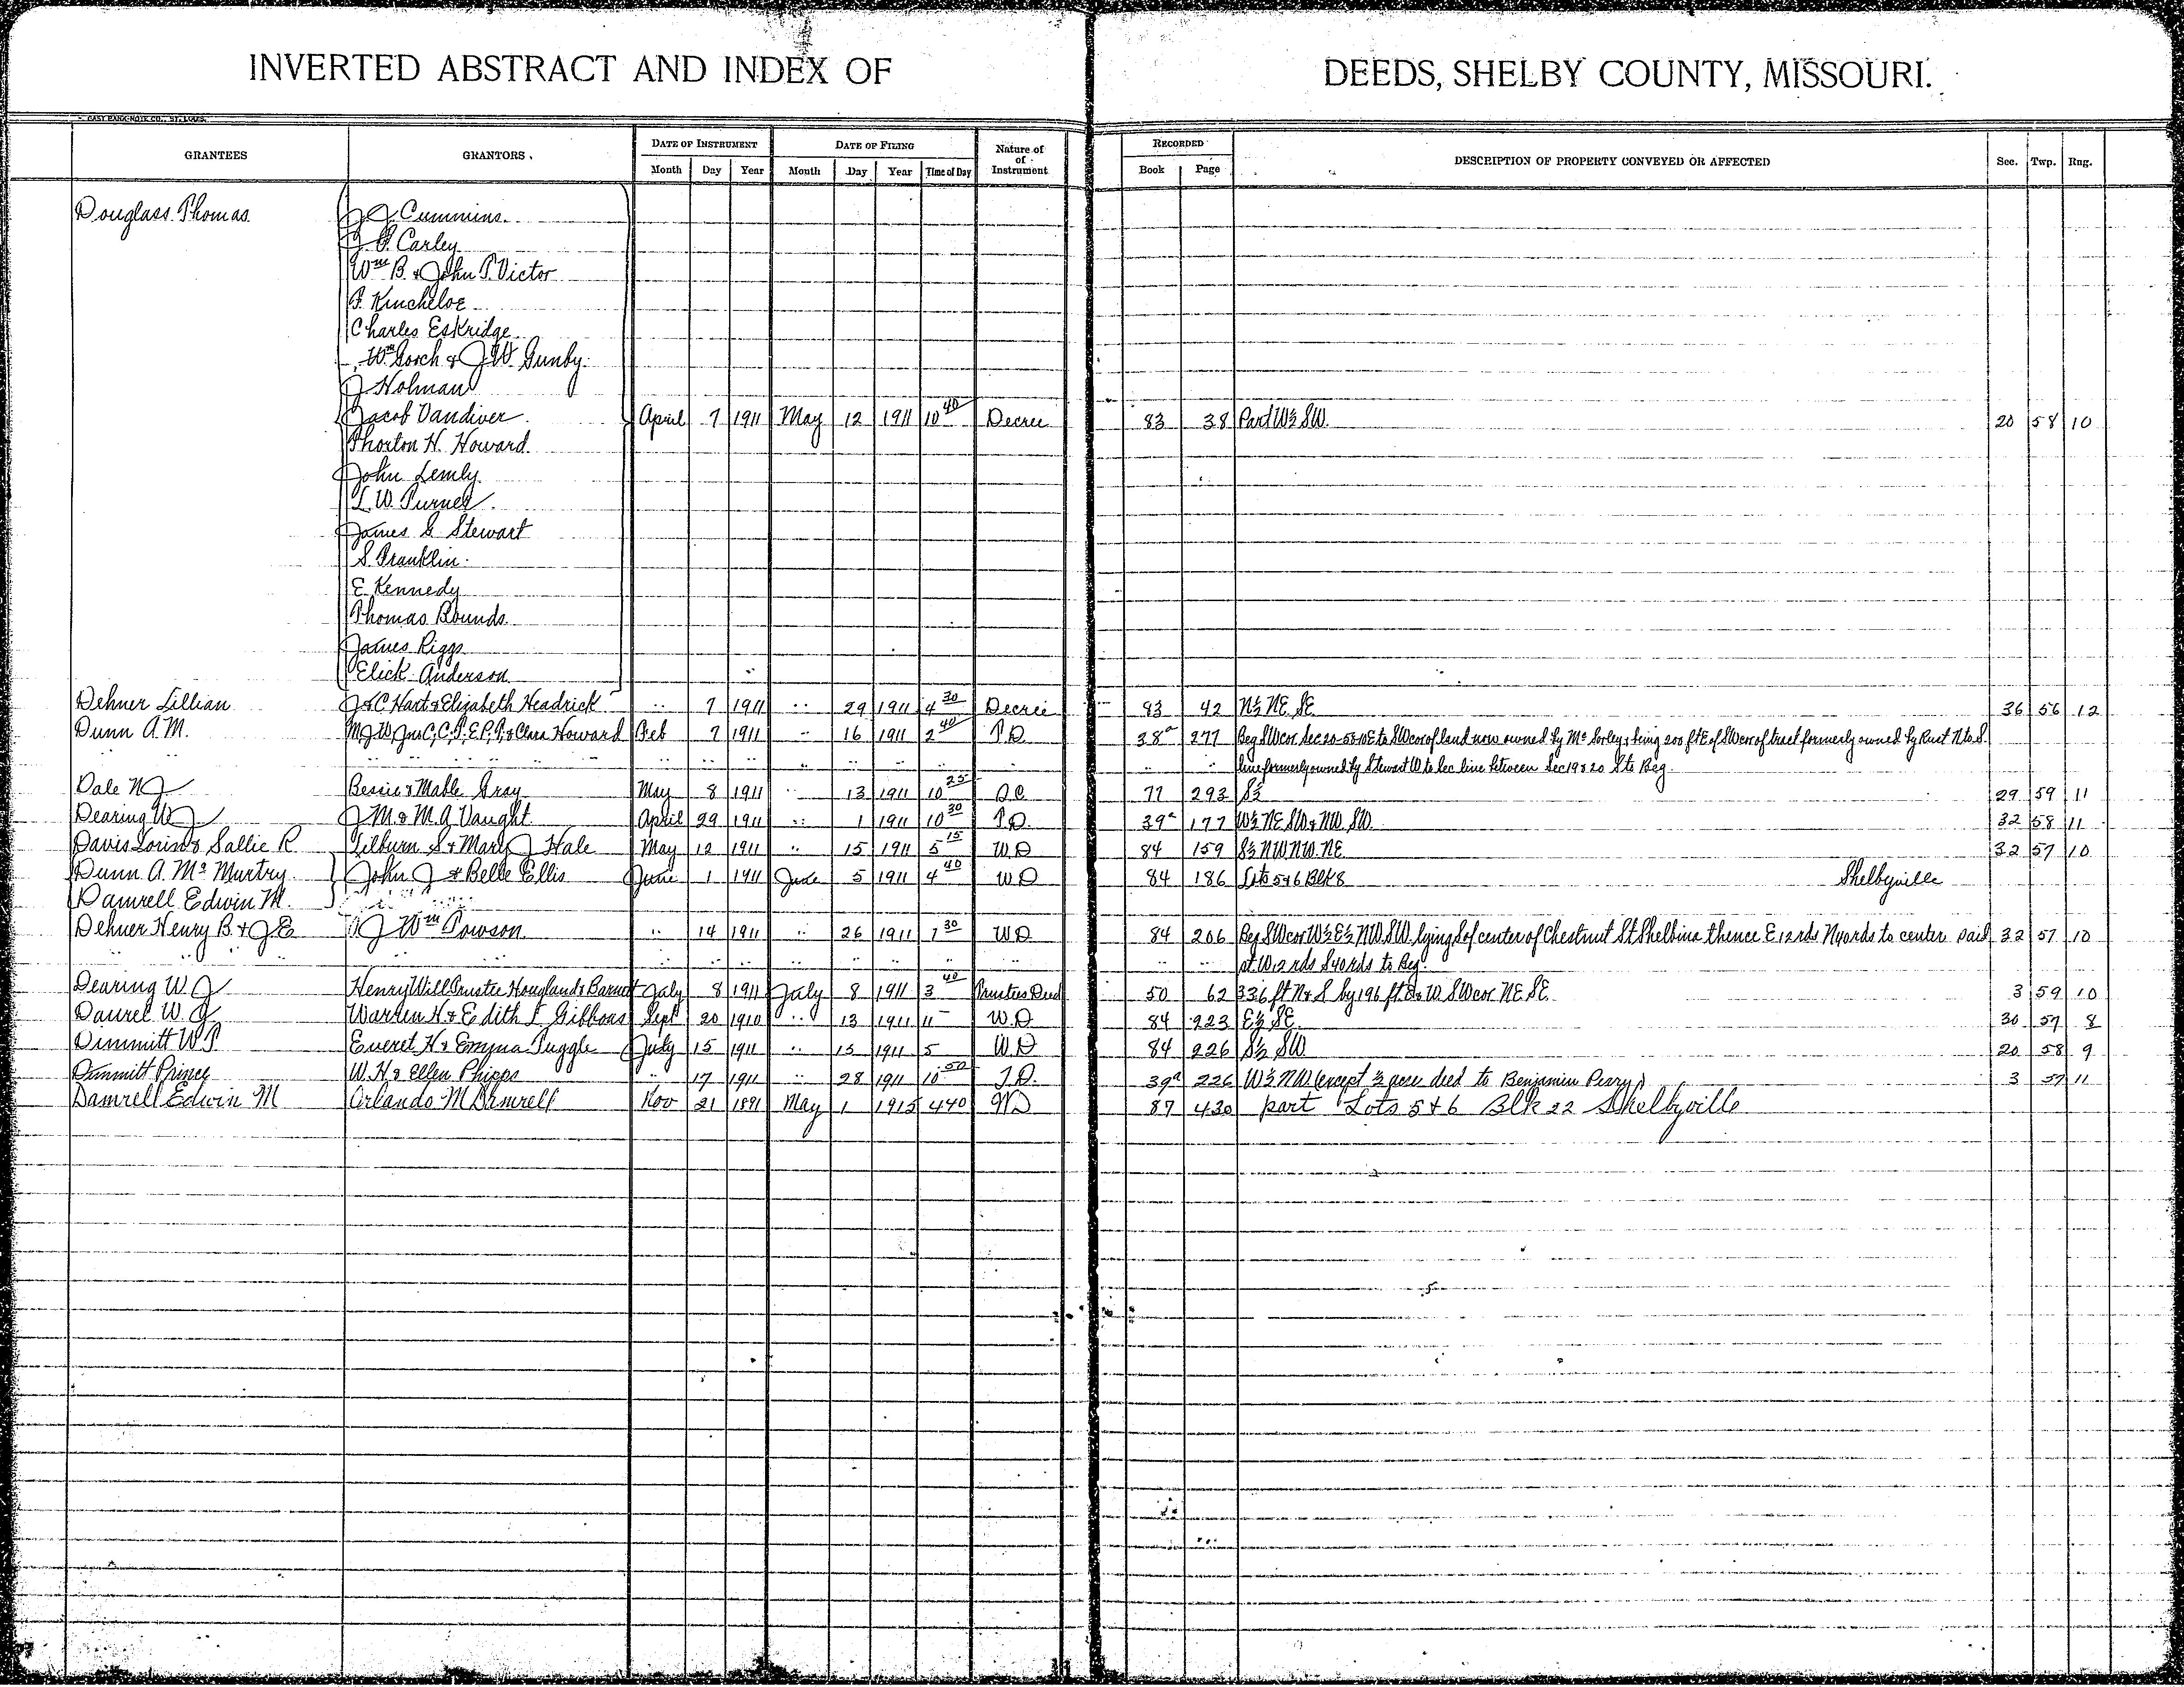 INVERTED ABSTRACT AND INDEX OF DEEDS, SHELBY COUNTY, MISSOURI.
GRANTEES GRANTORS DATE OF INSTRUMENT DATE OF FILING Nature of Instrument RECORDED DESCRIPTION OF PROPERTY CONVEYED OR AFFECTED Sec. Twp. Rng.
Month Day Year Month Day Year Time of Day Book Page
Douglass Thomas J. J. Cummins.
Carley
Wm B. & John T. Victor
Kincheloe
Charles Eskridge
Wm Gorch & J W. Gunby.
J. Holman
Jacob Vandiver April 7 1911 May 12 1911 10 40 Decree 83 38 Part W½ SW. 20 58 10
Thorton H. Howard.
John Lemly.
L. W. Turner.
James G Stewart
S. Franklin.
E Kennedy
Thomas Bounds.
James Riggs
Elick Anderson
Dehner Lillian J & C Hart & Elizabeth Headrick " 7 1911 " 29 1911 4 30 Decree 83 42 N½ NE SE 36 56 12
Dunn A. M. & Clara Howard Feb 7 1911 " 16 1911 2 40 38a 277 Beg SW cor Sec 20-58-10 E to SW cor of land now owned by Mc Sorley, being 200 ft E of SW cor of tract formerly owned by Rust N to S.
" " " " " " " " " line formerly owned by Stewart W to Sec line between Sec 19 & 20 S to Beg.
Dale N J Bessie & Mable Gray May 8 1911 " 13 1911 10 25 Q C 77 293 S½ 29 59 11
Dearing W J J M & M. A Vaught April 29 1911 " 1 1911 10 30 T. D. 39a 177 W½ NE SW & NW SW 32 58 11
Davis & Sallie R Tilburn S & Mary J Hale May 12 1911 " 15 1911 5 15 W D 84 159 S½ NW NW NE 32 57 10
Dunn A. Mc Murtry John J & Belle Ellis June 1 1911 June 5 1911 4 40 W D 84 186 Lots 5 & 6 Blk 8 Shelbyville
Damrell Edwin M.
Dehner Henry B. & J E J Wm Towson " 14 1911 " 26 1911 1 30 W D 84 206 Beg SW cor W½ E½ NW SW. lying S of center of Chestnut St Shelbina thence E 12 rds N 40 rds to center said 32 57 10
" " " " " " " " " st. W 12 rds S 40 rds to Beg.
Dearing W. J Henry Will Trustee Houglands Barnet July 8 1911 July 8 1911 3 40 Trustees Deed 50 62 336 ft N & S by 196 ft E & W. SW cor NE SE 3 59 10
Daurel W. J Warren H & Edith L Gibbons Sept 20 1910 " 13 1911 11 W. D 84 223 E½ SE 30 57 8
Dimmitt W T Everet H & Emma Tuggle July 15 1911 " 15 1911 5 W D 84 226 S½ SW 20 58 9
Dimmitt Prince W. H & Ellen Phipps " 17 1911 " 28 1911 10 50 T. D. 39a 226 W½ NW (except ½ acre deed to Benjamin Perry) 3 57 11
Damrell Edwin M Orlando M Damrell Nov 21 1891 May 1 1915 4 40 W D 87 430 part Lots 5 & 6 Blk 22 Shelbyville